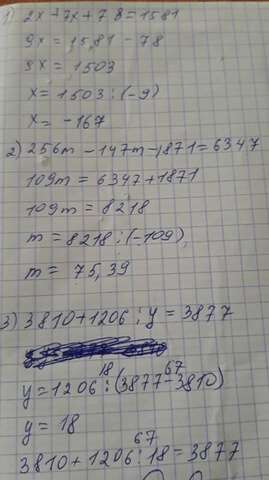 1) 2x + 7x + 78 = 1581
9x = 1581 - 78
9x = 1503
x = 1503 : (-9)
x = -167
2) 256m - 147m - 1871 = 6347
109m = 6347 + 1871
109m = 8218
m = 8218 : (-109)
m = 75,39
3) 3810 + 1206 : y = 3877
18 67
y = 1206 : (3877 - 3810)
y = 18
67
3810 + 1206 : 18 = 3877